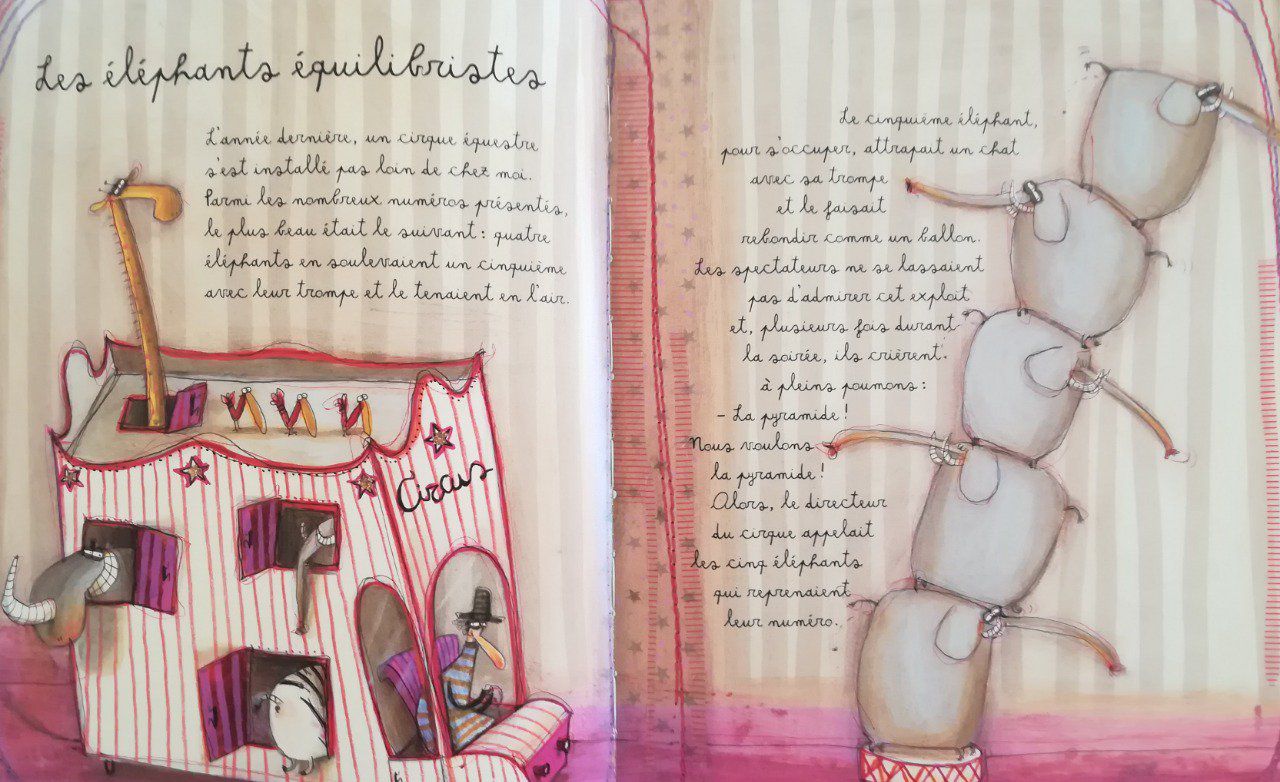 Les éléphants équilibristes
L'année dernière, un cirque équestre
s'est installé pas loin de chez moi.
Parmi les nombreux numéros présentés,
le plus beau était le suivant : quatre
éléphants en soulevaient un cinquième
avec leur trompe et le tenaient en l'air.
Circus
Le cinquième éléphant,
pour s'occuper, attrapait un chat
avec sa trompe
et le faisait
rebondir comme un ballon.
Les spectateurs ne se lassaient
pas d'admirer cet exploit
et, plusieurs fois durant
la soirée, ils crièrent
à pleins poumons :
– La pyramide !
Nous voulons
la pyramide !
Alors, le directeur
du cirque appelait
les cinq éléphants
qui reprenaient
leur numéro.